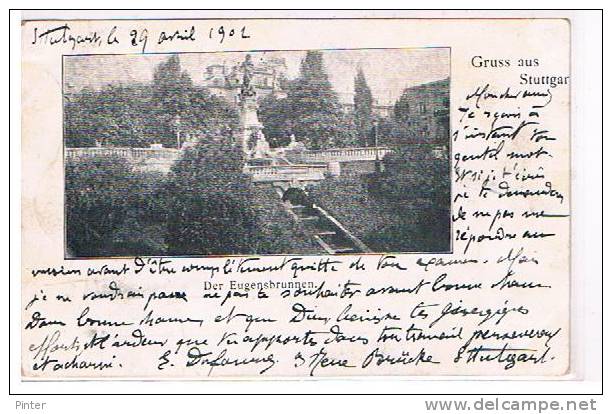 Stuttgart, le 29 avril 1902
Gruss aus
Stuttgar
Mon cher ami
Je reçois à
l'instant ton
gentil mot.
Et si je t'écris
je te demanderai
de ne pas me
répondre au
avant d'être complètement quitte de ton examen. Mais
Der Eugensbrunnen.
je ne voudrais pas ne pas te souhaiter avant bonne chance
bonne chance, et que Dieu bénisse tes énergiques
efforts et l'ardeur que tu apportes dans ton travail persévérant
et acharné. E. 3 Neue Brücke Stuttgart.
Pinter
www.delcampe.net